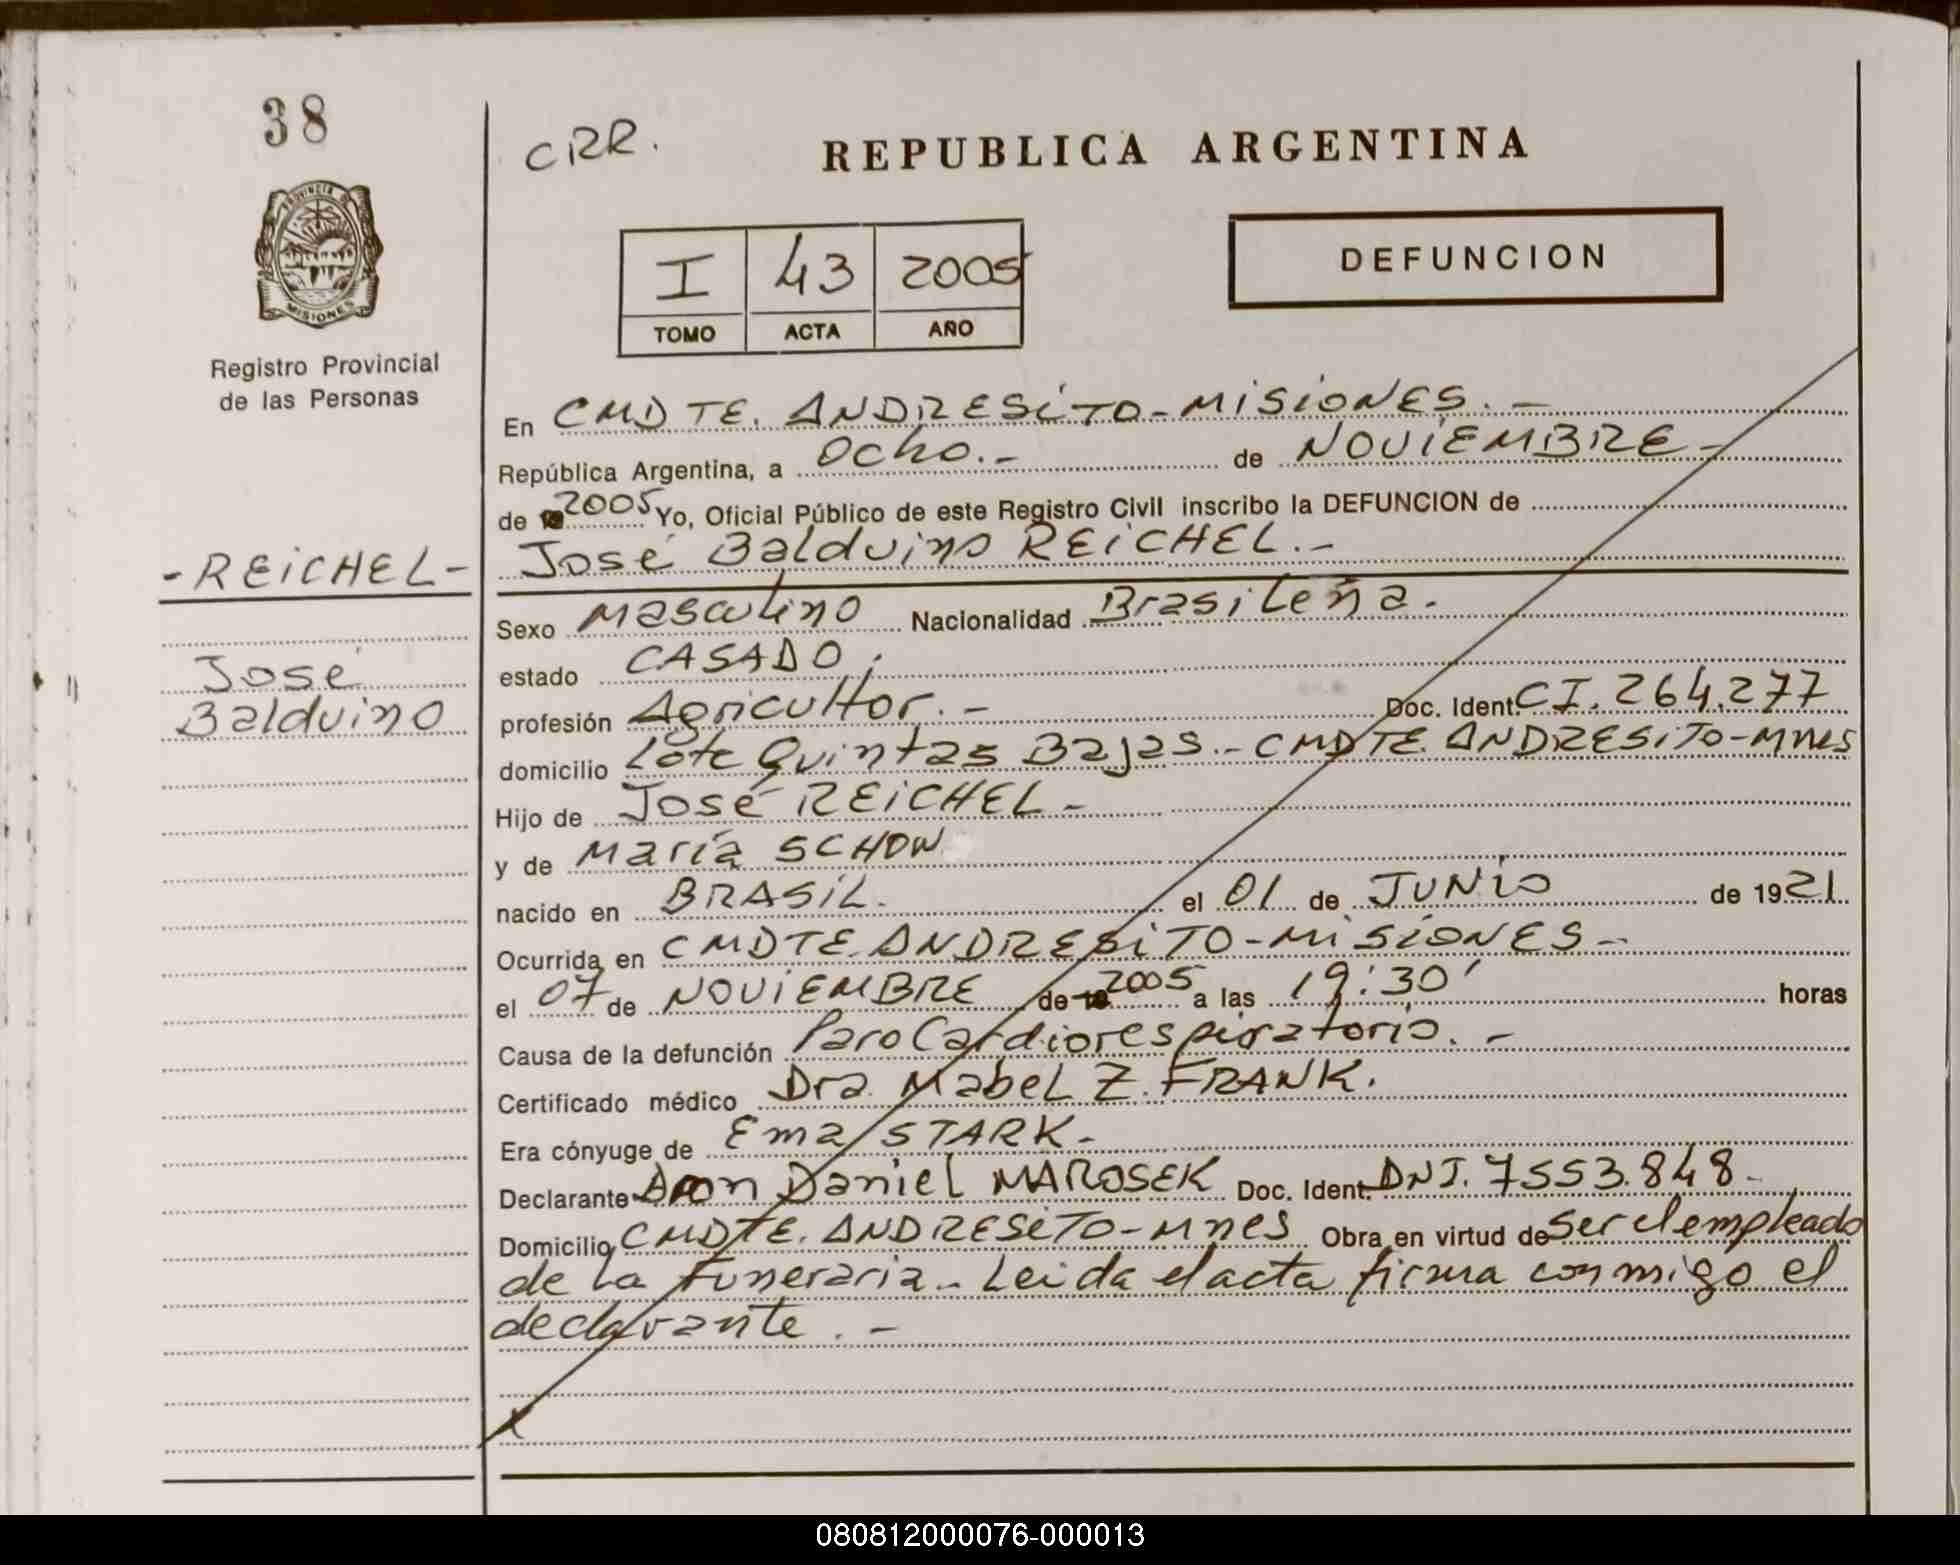 38
CRR.
REPUBLICA ARGENTINA
PROVINCIA DE
MISIONES
Registro Provincial
de las Personas
I 43 2005
TOMO ACTA AÑO
DEFUNCION
En CMDTE. ANDRESITO-MISIONES.-
República Argentina, a Ocho.- de NOVIEMBRE-
de 2005 Yo, Oficial Público de este Registro Civil inscribo la DEFUNCION de
-REICHEL-
José
Balduino
José Balduino REICHEL.-
Sexo Masculino Nacionalidad Brasileña.
estado CASADO.
profesión Agricultor.- Doc. Ident. CI. 264.277
domicilio Lote Quintas Bajas.- CMDTE. ANDRESITO-Mnes
Hijo de José REICHEL-
y de María SCHON
nacido en BRASIL. el 01 de JUNIO de 1921
Ocurrida en CMDTE. ANDRESITO-MISIONES-
el 07 de NOVIEMBRE de 2005 a las 19:30' horas
Causa de la defunción Paro Cardiorespiratorio.-
Certificado médico Dra. Mabel Z. FRANK.
Era cónyuge de Ema STARK-
Declarante Don Daniel MAROSEK Doc. Ident. DNI. 7553.848-
Domicilio CMDTE. ANDRESITO-Mnes Obra en virtud de Ser el empleado
de La Funeraria.- Leida el acta firma conmigo el
declarante.-
080812000076-000013